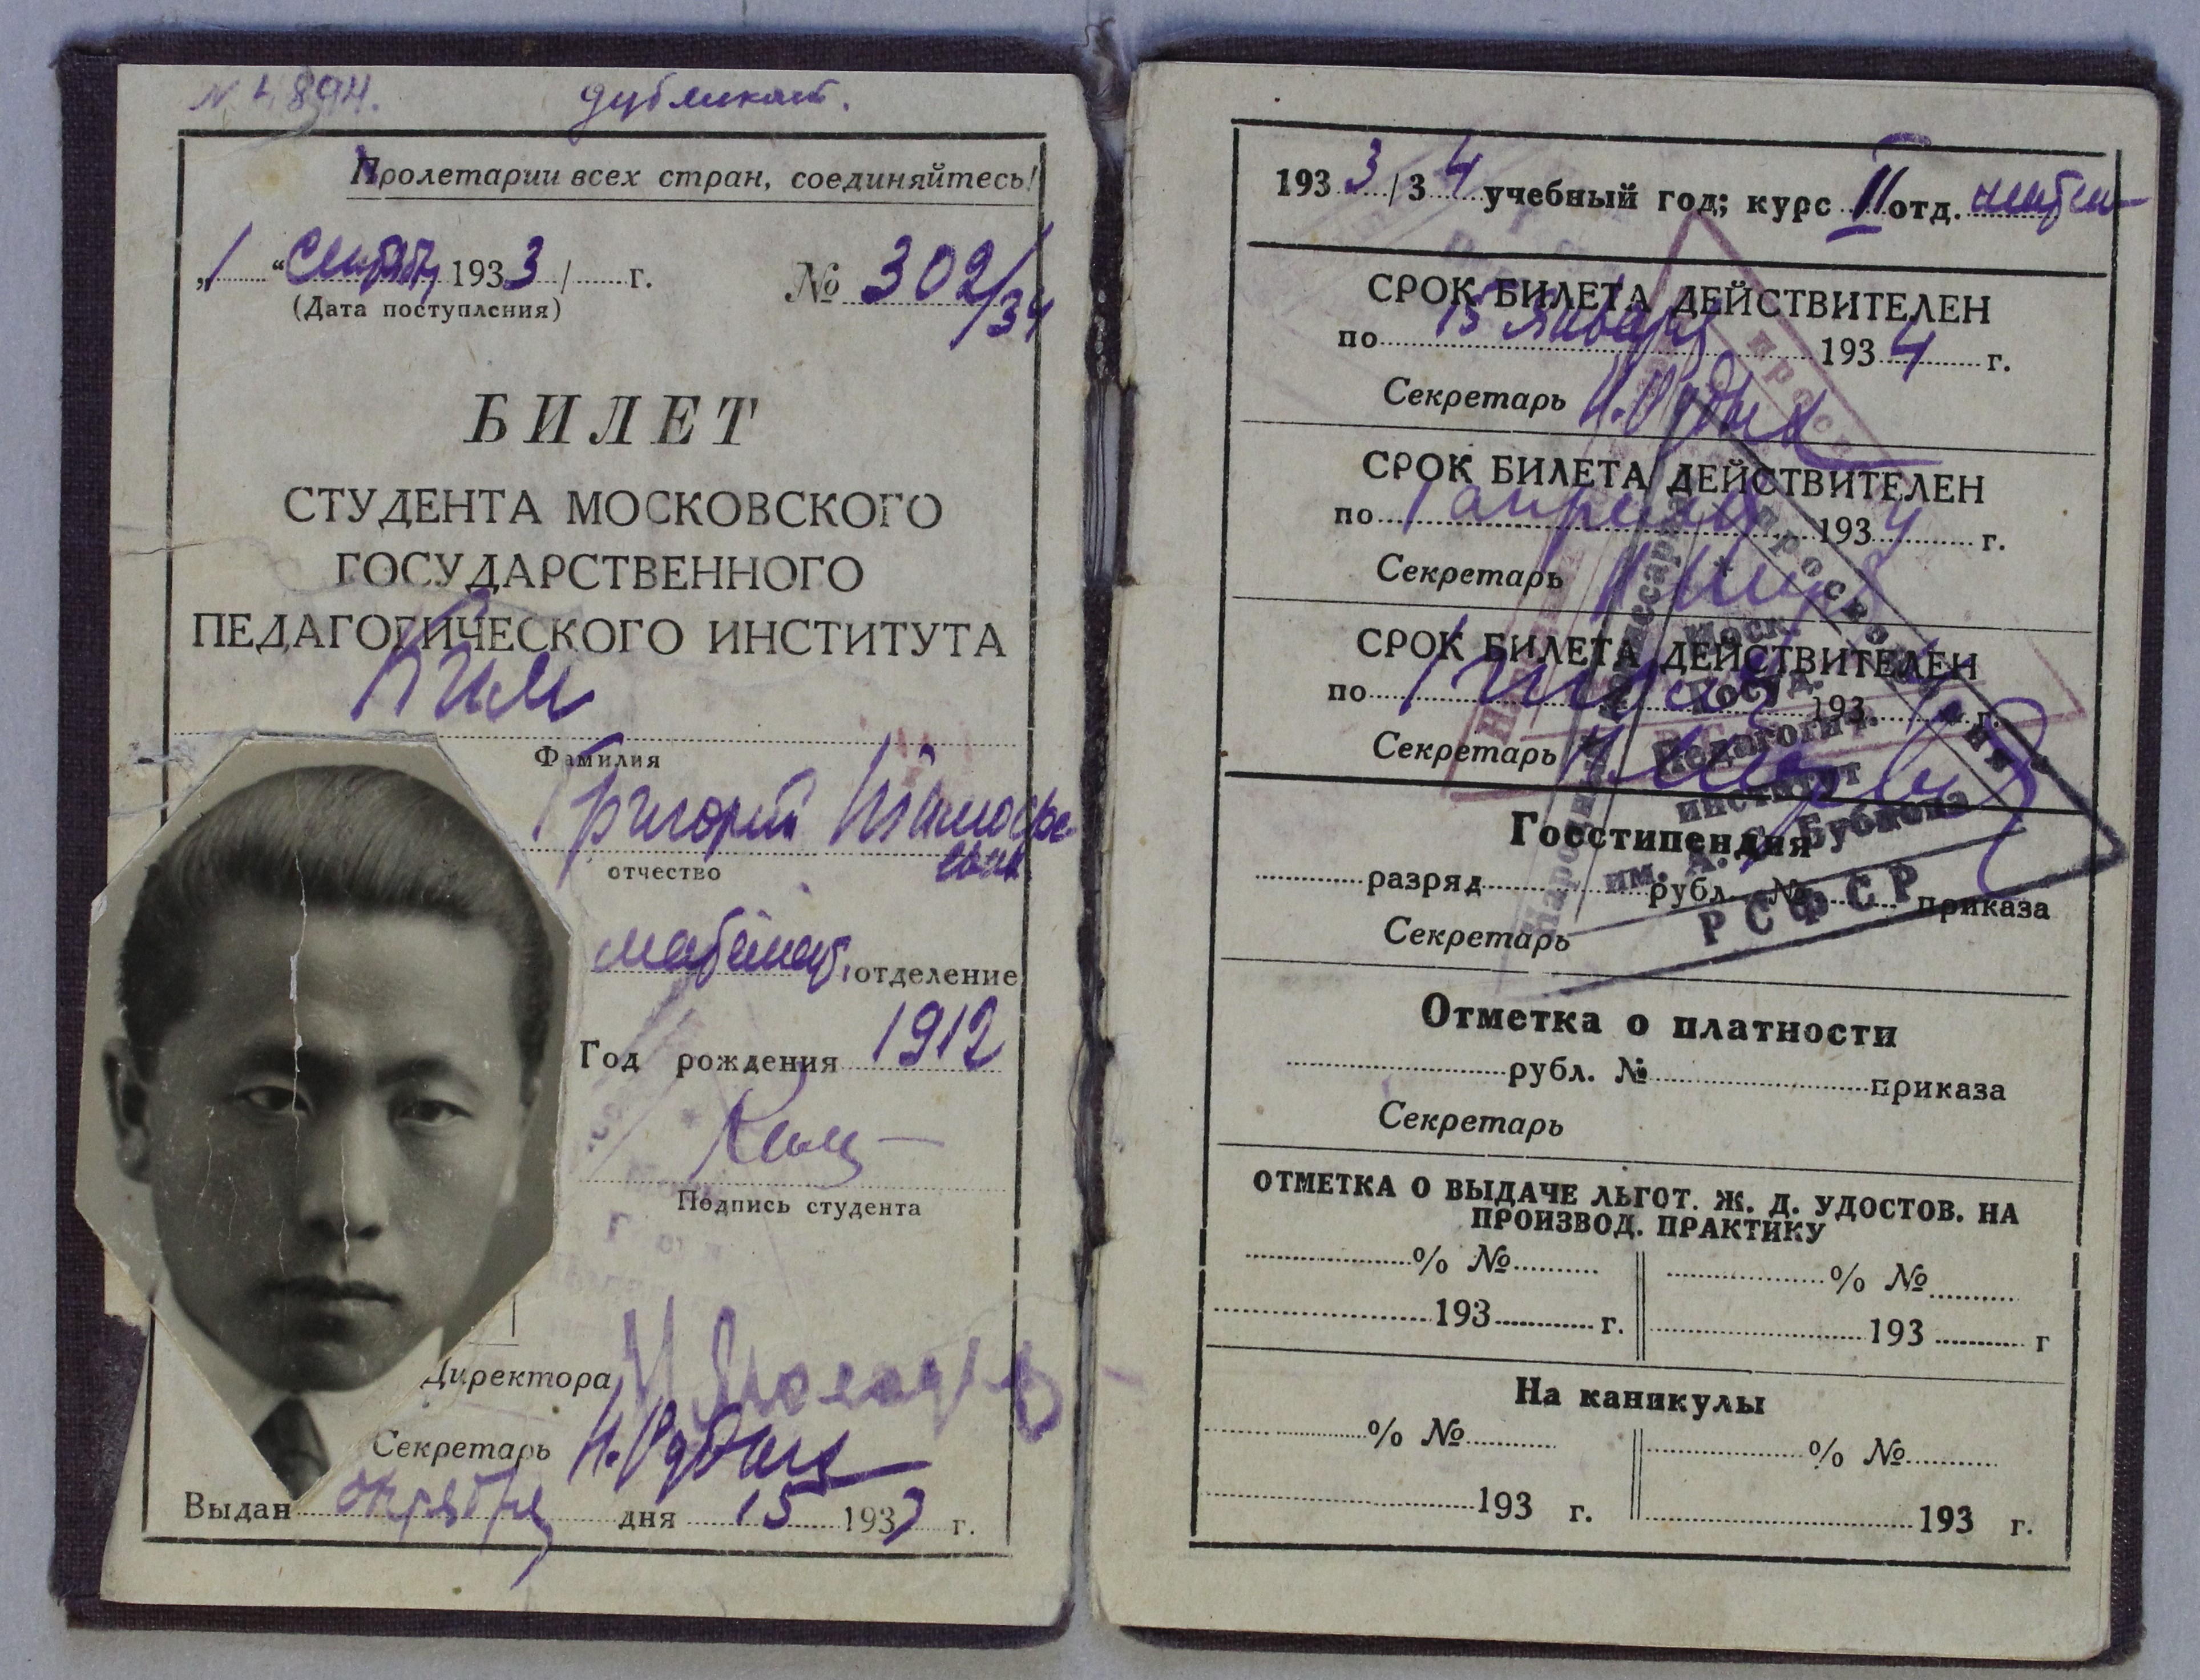 N 4894. дубликат.
Пролетарии всех стран, соединяйтесь!
„1“ Сентября 1933/......г. № 302/34
(Дата поступления)
БИЛЕТ
СТУДЕНТА МОСКОВСКОГО
ГОСУДАРСТВЕННОГО
ПЕДАГОГИЧЕСКОГО ИНСТИТУТА
Ким
Фамилия
Григорий
отчество
отделение
Год рождения 1912
Ким
Подпись студента
Директора
Секретарь
Выдан октября дня 15 1933 г.
1933/34 учебный год; курс II отд.
СРОК БИЛЕТА ДЕЙСТВИТЕЛЕН
по 15 января 1934 г.
Секретарь
СРОК БИЛЕТА ДЕЙСТВИТЕЛЕН
по 1 апреля 1934 г.
Секретарь
СРОК БИЛЕТА ДЕЙСТВИТЕЛЕН
по 1 193 г.
Секретарь
Моск.
Госуд.
Педагогич.
институт
им. А. С. Бубнова
РСФСР
Госстипендия
разряд рубл. № приказа
Секретарь
Отметка о платности
рубл. № приказа
Секретарь
ОТМЕТКА О ВЫДАЧЕ ЛЬГОТ. Ж. Д. УДОСТОВ. НА
ПРОИЗВОД. ПРАКТИКУ
% № % №
193 г. 193 г
На каникулы
% № % №
193 г. 193 г.